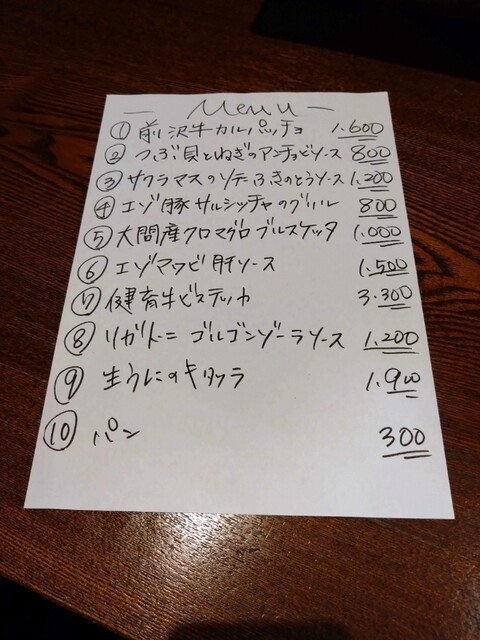 — Menu —
① 前沢牛カルパッチョ 1.600
② つぶ貝とねぎのアンチョビソース 800
③ サクラマスのソテーふきのとうソース 1.200
④ エゾ豚サルシッチャのグリル 800
⑤ 大間産クロマグロブルスケッタ 1.000
⑥ エゾアワビ肝ソース 1.500
⑦ 健育牛ビステッカ 3.300
⑧ リガトーニ ゴルゴンゾーラソース 1.200
⑨ 生うにのキタッラ 1.900
⑩ パン 300